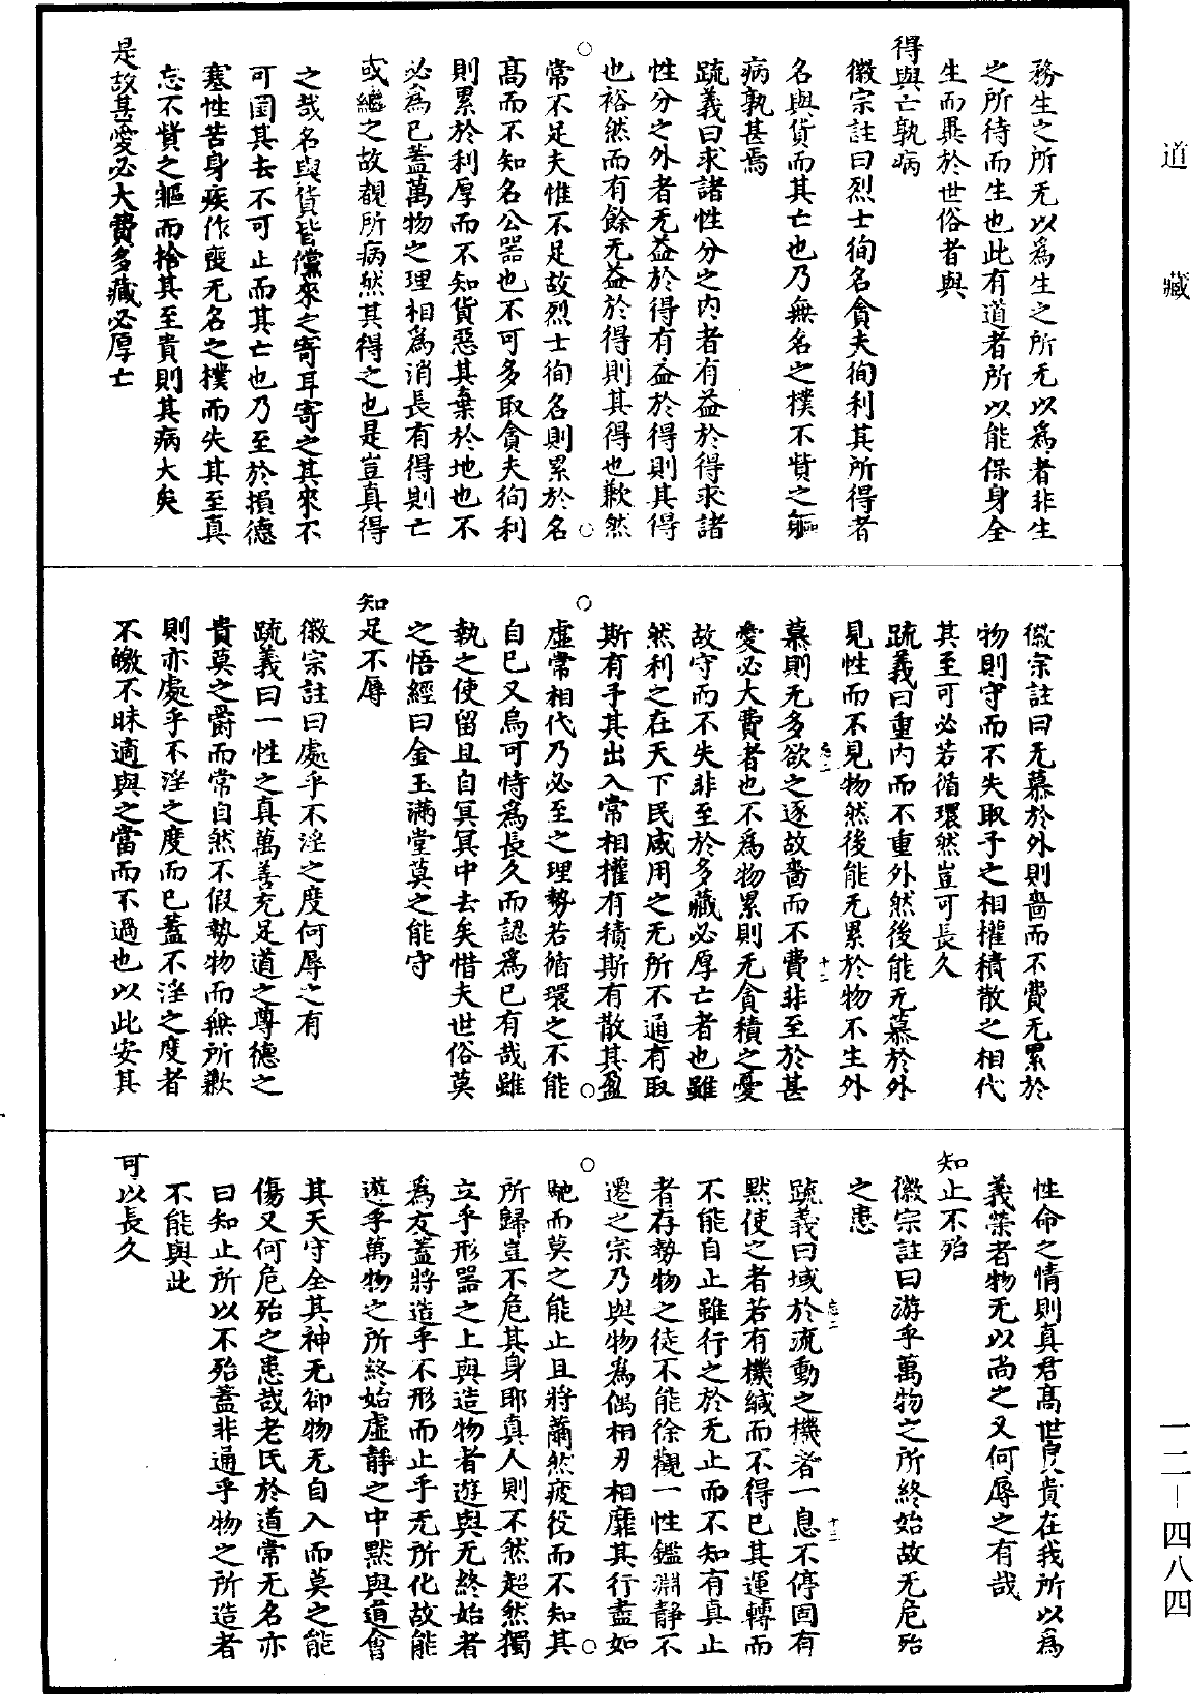 道藏
務生之所无以爲生之所无以爲者非生
之所待而生也此有道者所以能保身全
生而異於世俗者與
得與亡孰病
徽宗註曰烈士徇名貪夫徇利其所得者
名與貨而其亡也乃無名之樸不貲之軀
病孰甚焉
疏義曰求諸性分之內者有益於得求諸
性分之外者无益於得有益於得則其得
也裕然而有餘无益於得則其得也歉然
常不足夫惟不足故烈士徇名則累於名
高而不知名公器也不可多取貪夫徇利
則累於利厚而不知貨惡其棄於地也不
必爲已蓋萬物之理相爲消長有得則亡
或繼之故覩所病然其得之也是豈真得
之哉名與貨皆儻來之寄耳寄之其來不
可圉其去不可止而其亡也乃至於損德
塞性苦身疾作喪无名之樸而失其至真
忘不貲之軀而捨其至貴則其病大矣
是故甚愛必大費多藏必厚亡
徽宗註曰无慕於外則嗇而不費无累於
物則守而不失取予之相權積散之相代
其至可必若循環然豈可長久
疏義曰重內而不重外然後能无慕於外
見性而不見物然後能无累於物不生外
慕則无多欲之逐故嗇而不費非至於甚
愛必大費者也不爲物累則无貪積之憂
故守而不失非至於多藏必厚亡者也雖
然利之在天下民咸用之无所不通有取
斯有予其出入常相權有積斯有散其盈
虛常相代乃必至之理勢若循環之不能
自已又烏可恃爲長久而認爲已有哉雖
執之使留且自冥冥中去矣惜夫世俗莫
之悟經曰金玉滿堂莫之能守
知足不辱
徽宗註曰處乎不淫之度何辱之有
疏義曰一性之真萬善充足道之尊德之
貴莫之爵而常自然不假勢物而無所歉
則亦處乎不淫之度而已蓋不淫之度者
不皦不昧適與之當而不過也以此安其
性命之情則真君高世良貴在我所以爲
義榮者物无以尚之又何辱之有哉
知止不殆
徽宗註曰游乎萬物之所終始故无危殆
之患
疏義曰域於流動之機者一息不停固有
默使之者若有機緘而不得已其運轉而
不能自止雖行之於无止而不知有真止
者存勢物之徒不能徐觀一性鑑淵靜不
遷之宗乃與物爲偶相刃相靡其行盡如
馳而莫之能止且將薾然疲役而不知其
所歸豈不危其身耶真人則不然超然獨
立乎形器之上與造物者遊與无終始者
爲友蓋將造乎不形而止乎无所化故能
遊乎萬物之所終始虛靜之中默與道會
其天守全其神无郤物无自入而莫之能
傷又何危殆之患哉老氏於道常无名亦
曰知止所以不殆蓋非通乎物之所造者
不能與此
可以長久
一二—四八四